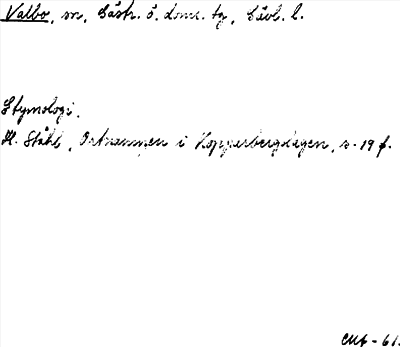 Valbo, sn, Gästr. ö. doms. tg, Gävl. l.
Etymologi.
H. Ståhl, Ortnamnen i Kopparbergslagen, s. 19 f.